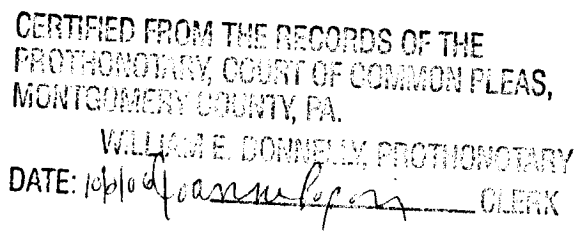 CERTIFIED FROM THE RECORDS OF THE
PROTHONOTARY, COURT OF COMMON PLEAS,
MONTGOMERY COUNTY, PA.
WILLIAM E. DONNELLY, PROTHONOTARY
DATE: CLERK